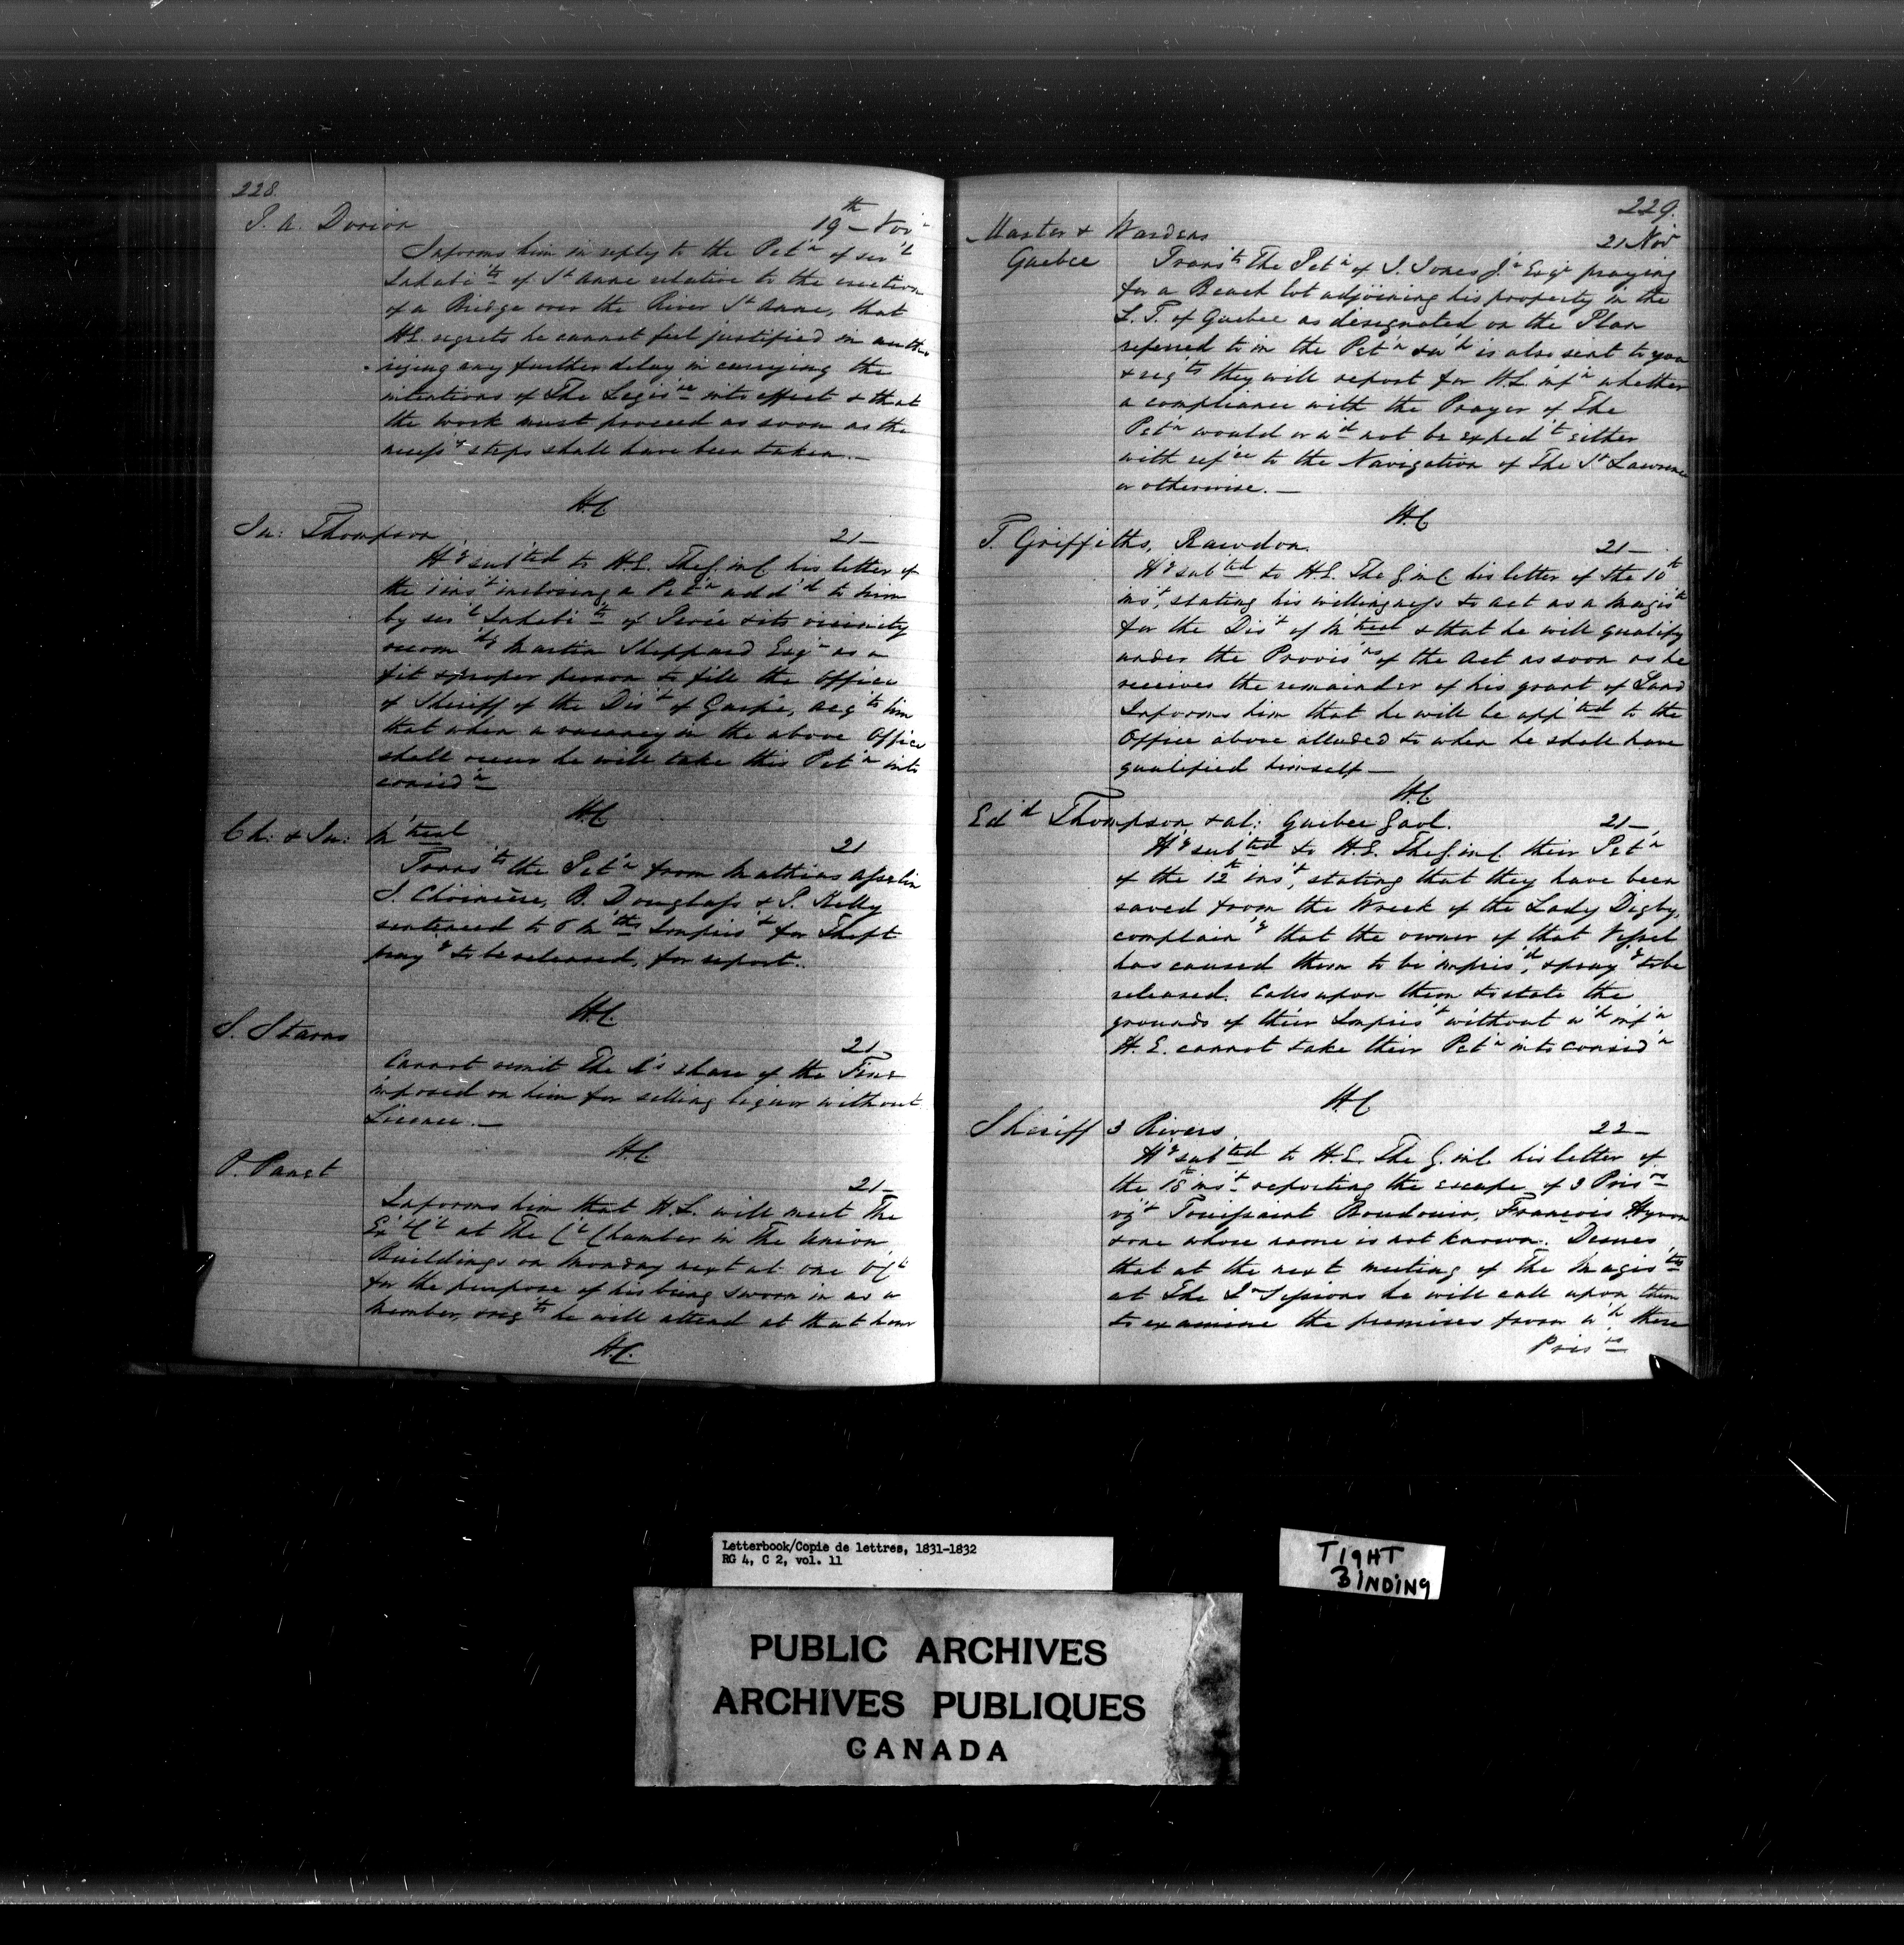 228.
P. A. Dorion 19th Novr
Informs him in reply to the Pet'n of sev'l
Inhabi'ts of St Anne relative to the erection
of a Bridge over the River St Anne, that
H.E. regrets he cannot feel justified in autho
rizing any further delay in carrying the
intentions of The Legis're into effect & that
the work must proceed as soon as the
necess'y steps shall have been taken.—
H.C.
Jn: Thompson 21—
H'g sub'ted to H.E. The G. in C. his letter of
the 1 ins't inclosing a Pet'n add'd to him
by sev'l Inhabi'ts of Percé & its vicinity
recom'dg Martin Sheppard Esqr as a
fit & proper person to fill the Office
of Sheriff of the Dis't of Gaspé, acq'ts him
that when a vacancy in the above Office
shall occur he will take this Pet'n into
consid'n
H.C.
Ch: & Jn: M'treal 21
Trans'ts the Pet'n from Mathias Asselin
J. Choinière, B. Douglass & P. Kelly
sentenced to 6 M'ths Impris't for Theft
pray'g to be released, for report.
H.C.
S. Starns 21
Cannot remit The K's share of the Fine
imposed on him for selling liquor without
Licence.—
H.C.
P. Panet 21—
Informs him that H.E. will meet The
Ex' C'l at The C'l Chamber in The Union
Buildings on Monday next at one O'C'k
for the purpose of his being sworn in as a
Member, & req'ts he will attend at that hour
H.C.
229.
Master & Wardens 21 Nov
Quebec
Trans'ts The Pet'n of J. Jones Jr Esqr praying
for a Beach lot adjoining his property in the
L. T. of Quebec as designated on the Plan
referred to in the Pet'n & w'h is also sent to you
& req'ts they will report for H.E. inf'n whether
a compliance with the Prayer of The
Pet'n would or w'd not be exped't either
with ref'ce to the Navigation of The St Lawrence
or otherwise.—
H.C.
T. Griffiths, Rawdon. 21—
H'g sub'ted to H.E. The G. in C. his letter of the 10th
ins't, stating his willingness to act as a Magis'te
for the Dis't of M'treal & that he will qualify
under the Provis'ns of the Act as soon as he
receives the remainder of his grant of Land
Informs him that he will be app'ted to the
Office above alluded to when he shall have
qualified himself—
H.C.
Edd Thompson & al: Quebec Gaol. 21—
H'g sub'ted to H.E. The G. in C. their Pet'n
of the 12th ins't, stating that they have been
saved from the Wreck of the Lady Digby,
complain'g that the owner of that Vessel
has caused them to be impris'd, & pray'g to be
released. Calls upon them to state the
grounds of their Impris't without w'h inf'n
H.E. cannot take their Pet'n into consid'n
H.C.
Sheriff 3 Rivers. 22—
H'g sub'ted to H.E. The G. in C. his letter of
the 18th ins't reporting the escape of 3 Pris'rs
viz't Toussaint Boudouin, François Hyvon
& one whose name is not known. Desires
that at the next meeting of The Magis'tes
at The Qr Sessions he will call upon them
to examine the premises from w'h these
Pris'rs
Letterbook/Copie de lettres, 1831-1832
RG 4, C 2, vol. 11
TIGHT
BINDING
PUBLIC ARCHIVES
ARCHIVES PUBLIQUES
CANADA